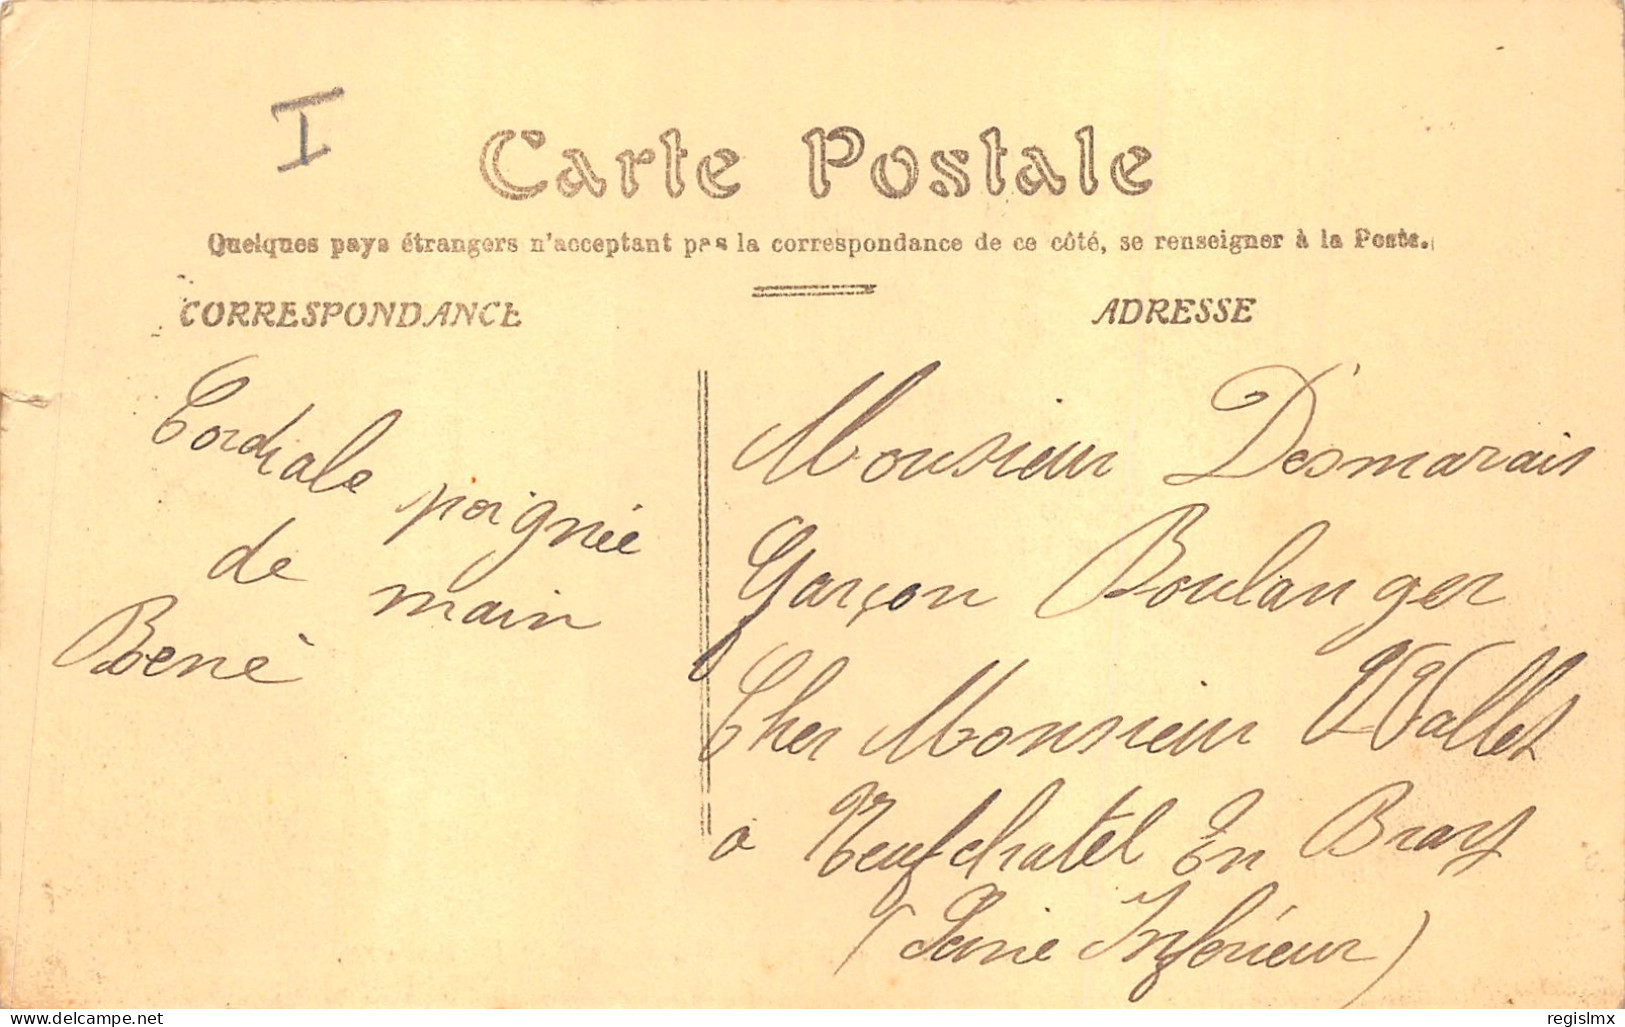 I
Carte Postale
Quelques pays étrangers n'acceptant pas la correspondance de ce côté, se renseigner à la Poste.
CORRESPONDANCE
ADRESSE
Cordiale poignée
de main
Bené
Monsieur Desmarais
Garçon Boulanger
Cher Monsieur Wallet
a Neufchatel En Bray
(Seine Inférieur)
www.delcampe.net
regislmx